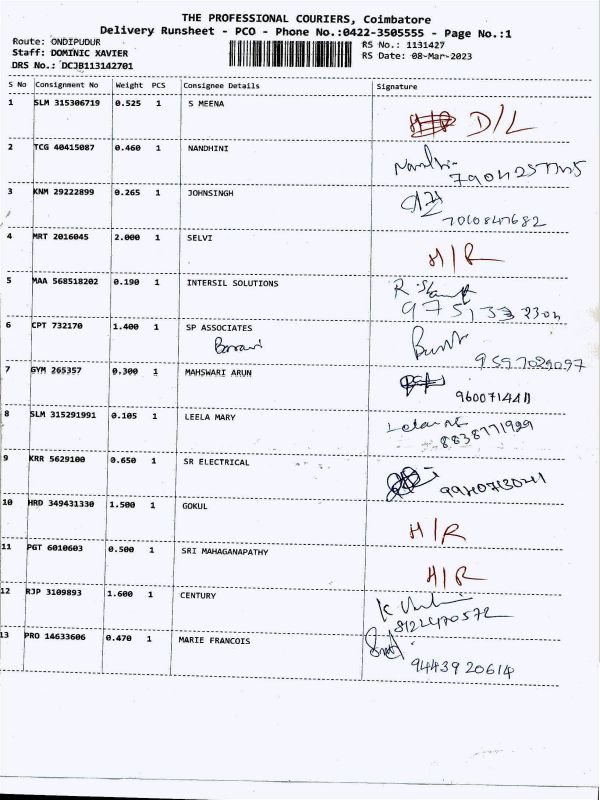 THE PROFESSIONAL COURIERS, Coimbatore
Delivery Runsheet - PCO - Phone No.:0422-3505555 - Page No.:1
Route: ONDIPUDUR RS No.: 1131427
Staff: DOMINIC XAVIER RS Date: 08-Mar-2023
DRS No.: DCJB113142701
S No Consignment No Weight PCS Consignee Details Signature
1 SLM 315306719 0.525 1 S MEENA D/L
2 TCG 40415087 0.460 1 NANDHINI
3 KNM 29222899 0.265 1 JOHNSINGH
7010847682
4 MRT 2016045 2.000 1 SELVI H/R
5 MAA 568518202 0.190 1 INTERSIL SOLUTIONS
6 CPT 732170 1.400 1 SP ASSOCIATES
9597029097
7 GYM 265357 0.300 1 MAHSWARI ARUN
8 SLM 315291991 0.105 1 LEELA MARY
8838771929
9 KRR 5629100 0.650 1 SR ELECTRICAL
10 HRD 349431330 1.500 1 GOKUL H/R
11 PGT 6010603 0.500 1 SRI MAHAGANAPATHY H/R
12 RJP 3109893 1.600 1 CENTURY
8122470572
13 PRO 14633606 0.470 1 MARIE FRANCOIS
9443920614